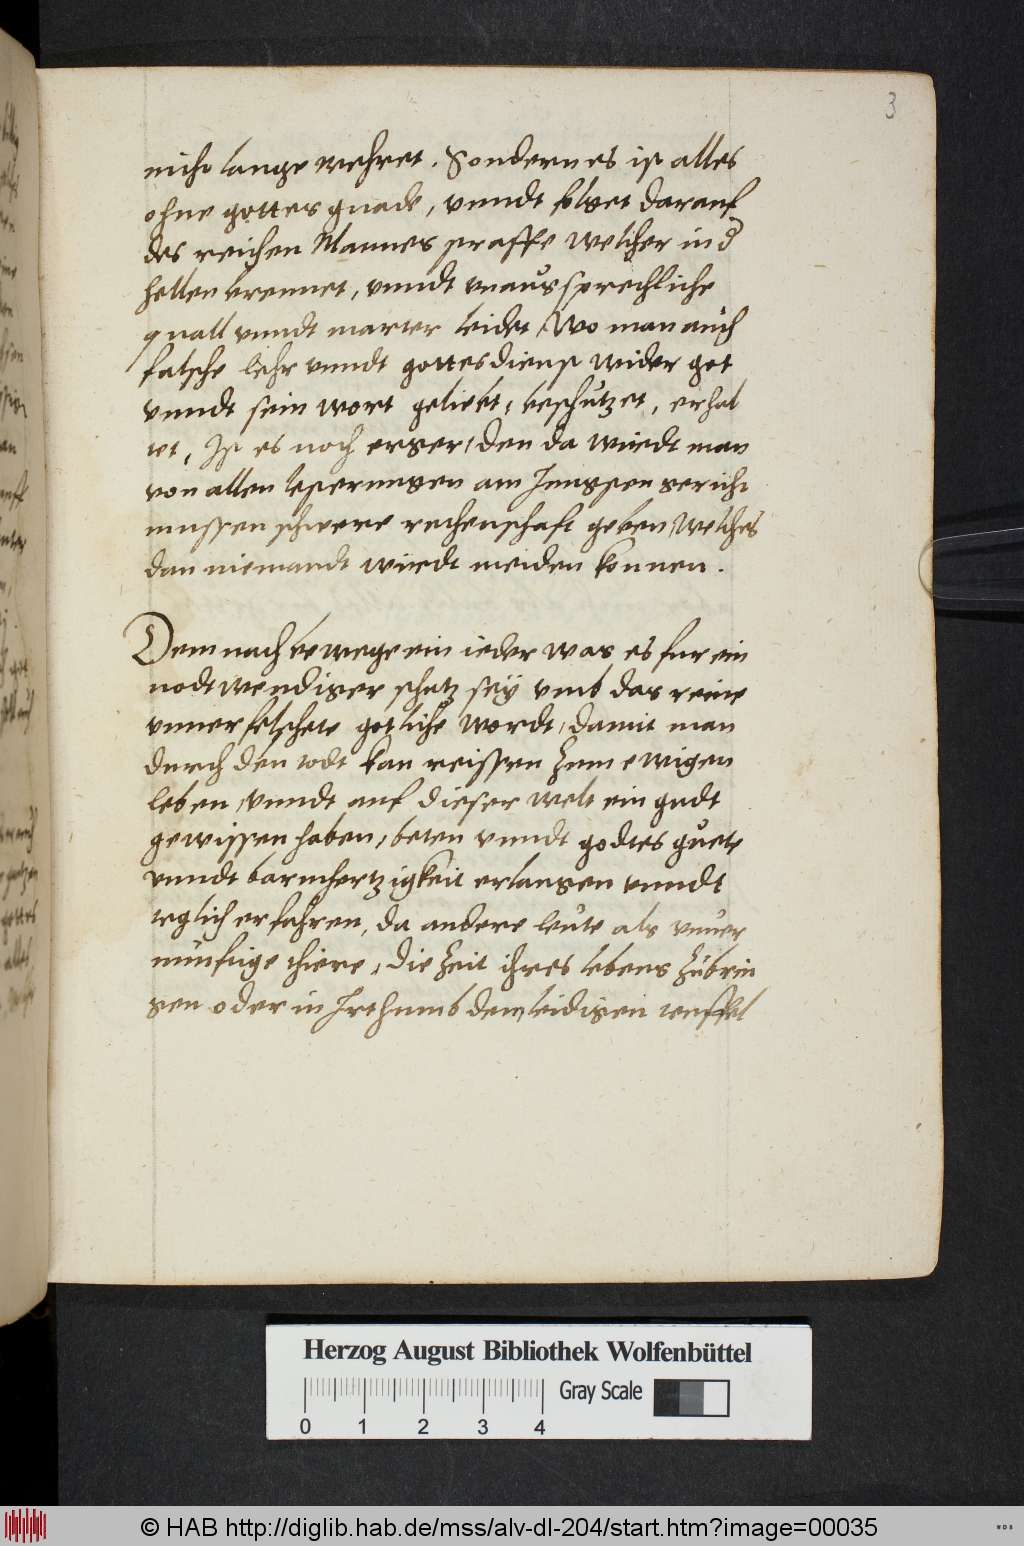 3
nicht lange wehret. Sondern es ist alles
ohne gottes gnade, vnndt folget darauf
des reichen Mannes straffe welcher in d
hellen brennet, vnndt vnaussprechliche
quall vnndt marter leidet, Wo man auch
falsche lehr vnndt gottesdienst wider got
vnndt sein wort geliebt, beschutzet, erhal
tet, Ist es noch erger, den da wirdt man
von allen lesterungen am Jungsten gericht
mussen schwere rechenschaft geben, Welches
dan niemandt wirdt meiden konnen.
Dem nach bewege ein ieder was es fur ein
nodtwendiger schatz sey vmb das reine
vnuerfelschete gotliche wordt, damit man
durch den todt kan reissen zum ewigen
leben, vnndt auf dieser welt ein gudt
gewissen haben, beten vnndt godtes guete
vnndt barmhertzigkeit erlangen vnndt
teglich erfahren, da andere leute als vnuer
nunftige thiere, die zeit ihres lebens zubrin
gen oder in Irthumb dem leidigen teuffel
Herzog August Bibliothek Wolfenbüttel
0 1 2 3 4
Gray Scale
© HAB http://diglib.hab.de/mss/alv-dl-204/start.htm?image=00035